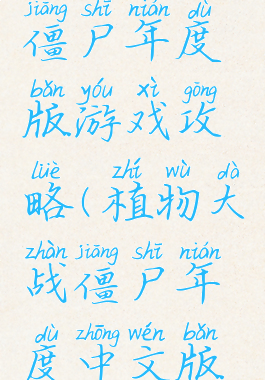 jiāng shī nián dù
僵尸年度
bǎn yóu xì gōng
版游戏攻
lüè zhí wù dà
略(植物大
zhàn jiāng shī nián
战僵尸年
dù zhōng wén bǎn
度中文版